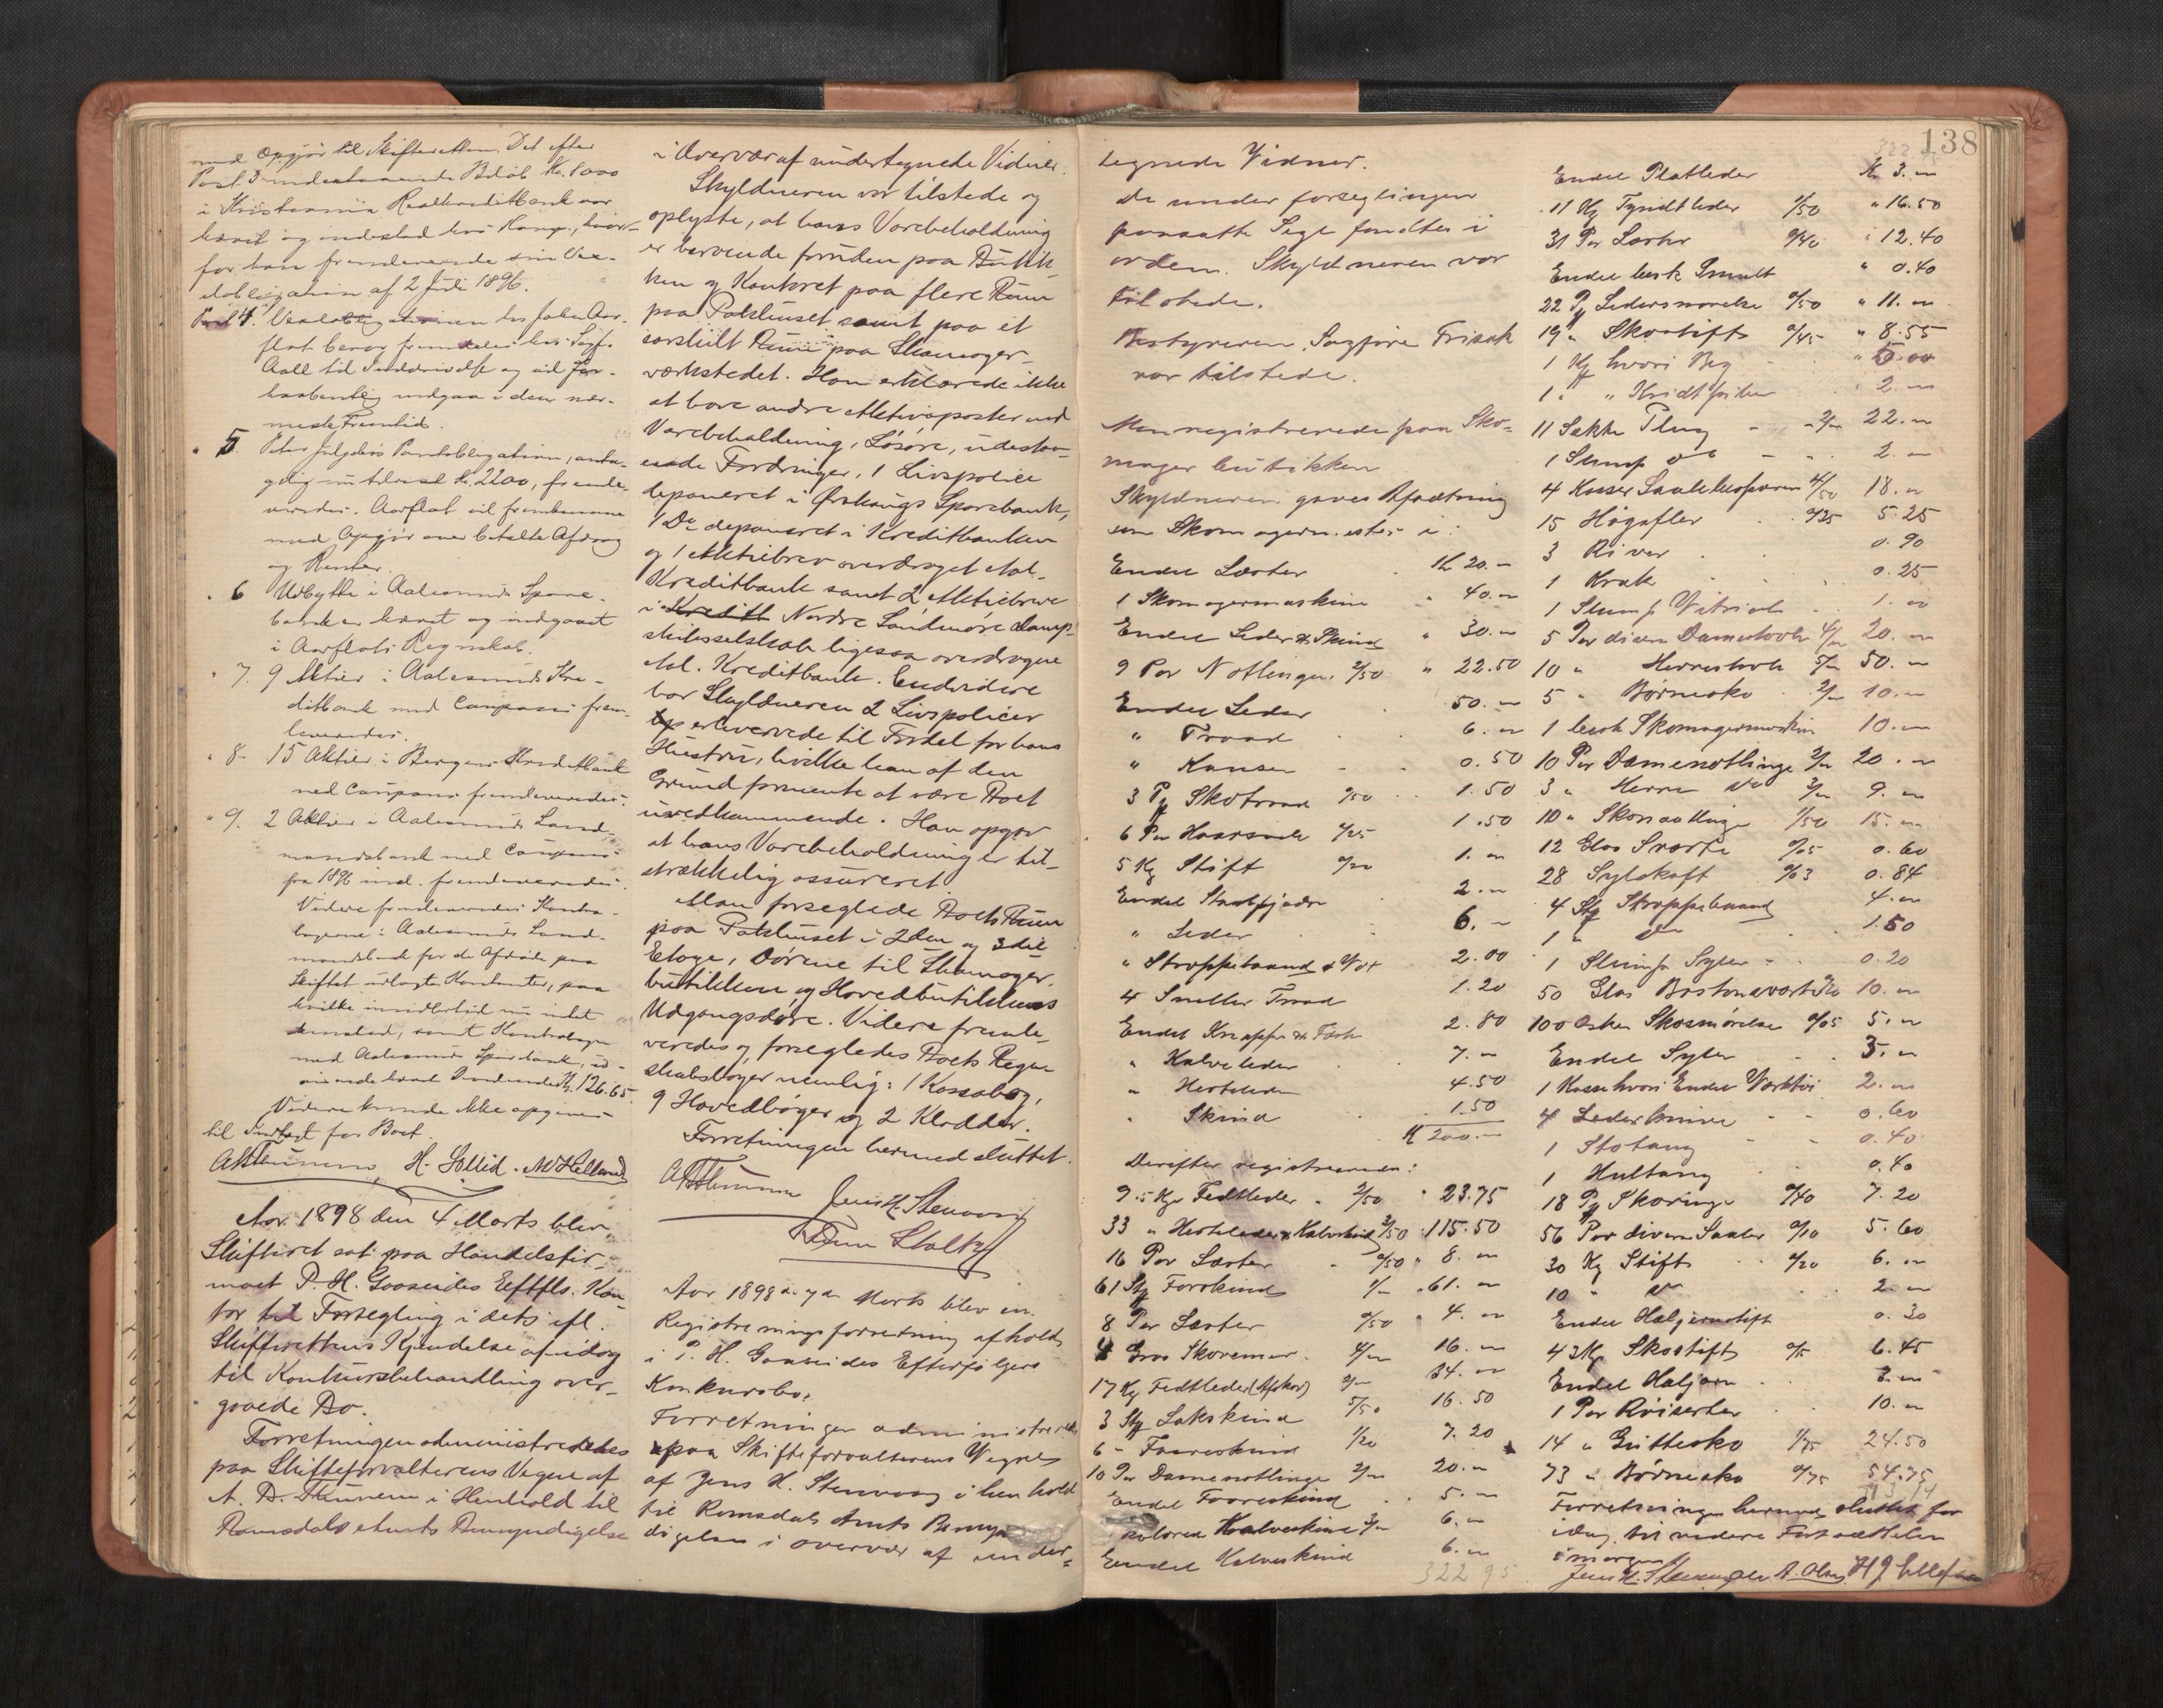 med Opgjør til Skifteretten. Det efter
Post 3 indestaaende Beløb Kr. 1000
i Kristiania Realkreditbank var
hævet og indestod hos Komp., hvor-
for han fremleverede sin
obligation af 2 Juli 1896.
Post 4. Vexelobligationen hos John Aar-
flot beror fremdeles hos Sagf.
Aall til Inddrivelse og vil for-
haabentlig indgaa i den nær-
meste Fremtid.
" 5. Peter Pantobligation, anta-
gelig Kr. 2200, fremle-
veredes. Aarflot vil fremkomme
med Opgjør over betalte Afdrag
og Renter.
" 6 Udbytte i Aalesunds Spare-
bank er hævet og indgaaet
i Aarflots Regnskab.
" 7. 9 Aktier i Aalesunds Kre-
ditbank med Coupons frem-
leveredes.
" 8- 15 Aktier i Bergens Kreditbank
med Coupons fremleveredes.
" 9. 2 Aktier i Aalesunds Land-
mandsbank med Coupons
fra 1896 incl. fremleveredes.
Videre fremleveredes Kontra-
bøgerne i Aalesunds Land-
mandsbank for de Afdøde paa
Skiftet udlagte Kontanter, paa
hvilke imidlertid nu intet
indestod, samt Kontrabogen
med Aalesunds Sparebank, ud-
visende Kr. 126.65.
Videre kunde ikke opgives
til Indtægt for Boet.
A Thunem H. Sollid. M Helland
Aar 1898 den 4 Marts blev
Skifteret sat paa Handelsfir-
maet P. H. Gaaseides Eftfls. Kon-
tor til Forsegling i dets ifl.
Skifterettens Kjendelse af idag
til Konkursbehandling over-
gaaede Bo.
Forretningen administreredes
paa Skifteforvalterens Vegne af
A. B. Thunem i Henhold til
Romsdals Amts Bemyndigelse
i Overvær af undertegnede Vidner.
Skyldneren var tilstede og
oplyste, at hans Varebeholdning
er beroende foruden paa Butik-
ken og Kontoret paa flere Rum
paa Pakhuset samt paa et
særskilt Rum paa Skomager-
værkstedet. Han erklærede ikke
at have andre Aktivaposter end
Varebeholdning, Løsøre, udestaa-
ende Fordringer, 1 Livspolice
deponeret i Ørskougs Sparebank,
1 Do deponeret i Kreditbanken
og 1 Aktiebrev overdraget Aal.
Kreditbank samt 2 Aktiebreve
i Kreditb Nordre Søndmøre Damp-
skibsselskab ligesaa overdragne
Aal. Kreditbank. Endvidere
har Skyldneren 2 Livspolicer
erhvervede til Fordel for hans
Hustru, hvilke han af den
Grund formente at være Boet
uvedkommende. Han opgav
at hans Varebeholdning er til-
strækkelig assureret
Man forseglede Boets Rum
paa Pakhuset i 2den og 3die
Etage, Dørene til Skomager-
butikken og Hovedbutikkens
Udgangsdøre. Videre fremle-
veredes og forsegledes Boets Regn-
skabsbøger nemlig: 1 Kassabog,
9 Hovedbøger og 2 Kladder.
Forretningen hermed sluttet.
A Thunem Jens H. Stenvaag
Stoltz
Aar 1898 d. 7de Marts blev en
Registreringsforretning afholdt
i P. H. Gaaseides Efterfølgers
Konkursbo.
Forretningen administreredes
paa Skifteforvalterens Vegne
af Jens H. Stenvaag i henhold
til Romsdals Amts Bemyn-
digelse i overvær af under-
tegnede Vidner.
De under forseglingen
paasatte Segl fandtes i
orden. Skyldneren var
tilstede.
Bestyreren, Sagfører Frisak
var tilstede.
Man registrerede paa Sko-
mager butikken
Skyldneren gaves Afsætning
som Skomagermester i:
Endel Læster Kr 20.-
1 Skomagermaskine " 40.-
Endel Leder & Skind " 30.-
9 Par Notlinger 2/50 " 22.50
Endel Leder 50.-
" Traad 6.-
" Kanser 0.50
3 Pg Skotraad 0/50 1.50
6 Par Haarsaale 0/25 1.50
5 Kg Stift 0/20 1.-
Endel Staalfjædre 2.-
" Leder 6.-
" Stroppebaand & Vox 2.00
4 Sneller Traad 1.20
Endel Knapper & 2.80
" Kalveleder 7.-
" Hesteleder 4.50
" Skind 1.50
Kr 200.-
Derefter registreredes:
9.5 Kgr Fedtleder 2/50 " 23.75
33 " Hesteleder & Kalveskind 3/50 " 115.50
16 Par Læster 0/50 " 8.-
61 Stk Forskind 1/- " 61.-
8 Par Læster 0/50 " 4.-
4 Gros Skoremer 4/- 16.-
17 Kg Fedtleder (Afskor) 2/- 34.-
3 Stk Lakskind 5/50 16.50
6 " Faareskind 1/20 7.20
10 Par Damenotlinger 2/- 20.-
Endel Faareskind 5.-
kolorede Kalveskind 3/- 6.-
Endel Kalveskind 6.-
322 95
138
322 95
Endel Platleder Kr 3.-
11 Kg Tyndtleder 1/50 " 16.50
31 Par Læster 0/40 " 12.40
Endel besk Smult " 0.40
22 Pg Ledersmørelse 0/50 " 11.-
19 " Skostift 0/45 " 8.55
1 Kg hvori Beg " 5.00
1 " " Kridt 2.-
11 Sække Pløug 2/- 22.-
1 Slump do 2.-
4 Kasser 4/50 18.-
15 0/35 5.25
3 River 0.90
1 Krak 0.25
1 Slump Vitriol 1.00
5 Par diverse Damestøvle 4/- 20.-
10 " Herrestøvle 5/- 50.-
5 " Børnesko 2/- 10.-
1 besk Skomagermaskin 10.-
10 Par Damenotlinge 2/- 20.-
3 " Herre do 3/- 9.-
10 " 1/50 15.-
12 Glas Sværte 0/05 0.60
28 Sylskaft 0/03 0.84
4 Stk Stroppebaand 4.-
1 " do 1.50
1 Slump Syler 0.20
50 Glas Bostonsværte 0/20 10.-
100 Æsker Skosmørelse 0/05 5.-
Endel Syler 3.-
1 Kasse hvori Endel Værktøi 2.-
4 Lederknive 0.60
1 Stotang 0.40
1 Hultang 0.40
18 Pg Skoringe 0/40 7.20
56 Par diverse Saaler 0/10 5.60
30 Kg Stift 0/20 6.-
10 " do 2.-
Endel Hæljernstift 0.30
43 Kg Skostift 0/15 6.45
Endel Hæljern 2.-
1 Par 10.-
14 " Guttesko 1/75 24.50
73 " Børnesko 0/75 54.75
Forretningen hermed sluttet for
idag til videre Fortsættelse
imorgen
Jens H. Stenvaag A. Olsen H J Ellefsen